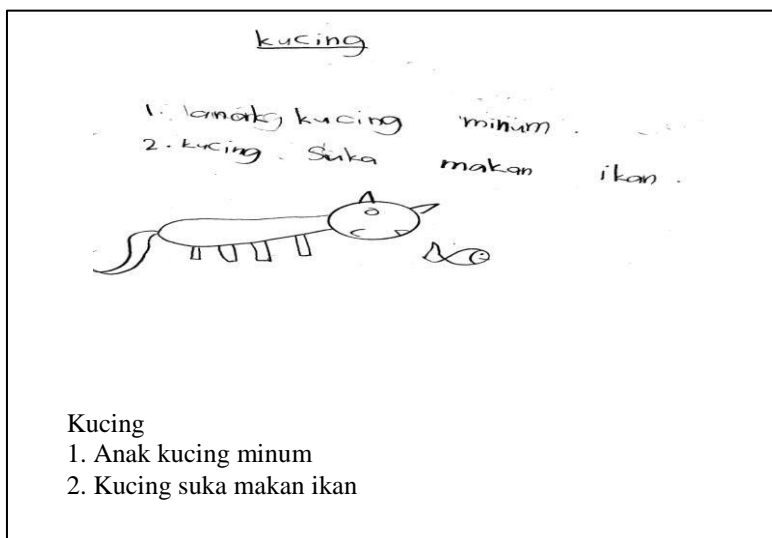 kucing
1. anak kucing minum.
2. kucing. Suka makan ikan.
Kucing
1. Anak kucing minum
2. Kucing suka makan ikan